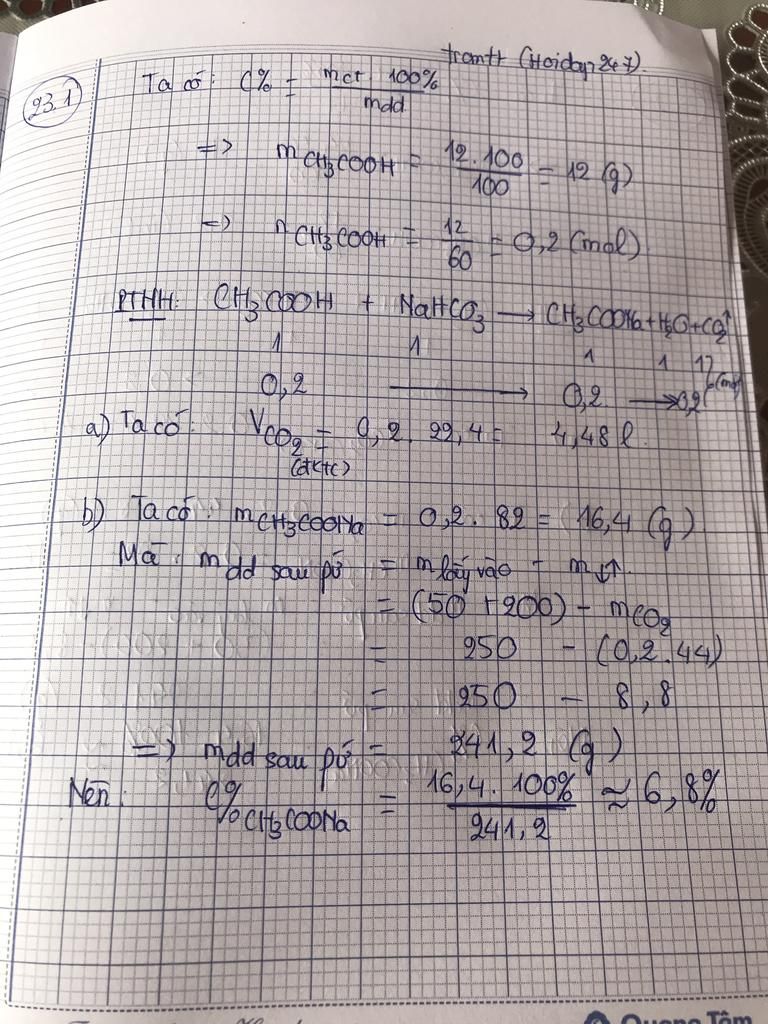 tramtt (Hoidap247).
23.1
Ta có: C% = mct. 100% / mdd
=> mCH3COOH = 12.100 / 100 = 12 (g)
=> nCH3COOH = 12 / 60 = 0,2 (mol)
PTHH: CH3COOH + NaHCO3 → CH3COONa + H2O + CO2↑
1 1 1 1 1
0,2 → 0,2 → 0,2 (mol)
a) Ta có: VCO2 (đktc) = 0,2. 22,4 = 4,48 l.
b) Ta có: mCH3COONa = 0,2. 82 = 16,4 (g).
Mà: mdd sau pứ = mlấy vào - m↓↑.
= (50 + 200) - mCO2
= 250 - (0,2.44)
= 250 - 8,8
=> mdd sau pứ = 241,2 (g)
Nên: C%CH3COONa = 16,4. 100% / 241,2 ≈ 6,8%
Quang Tâm